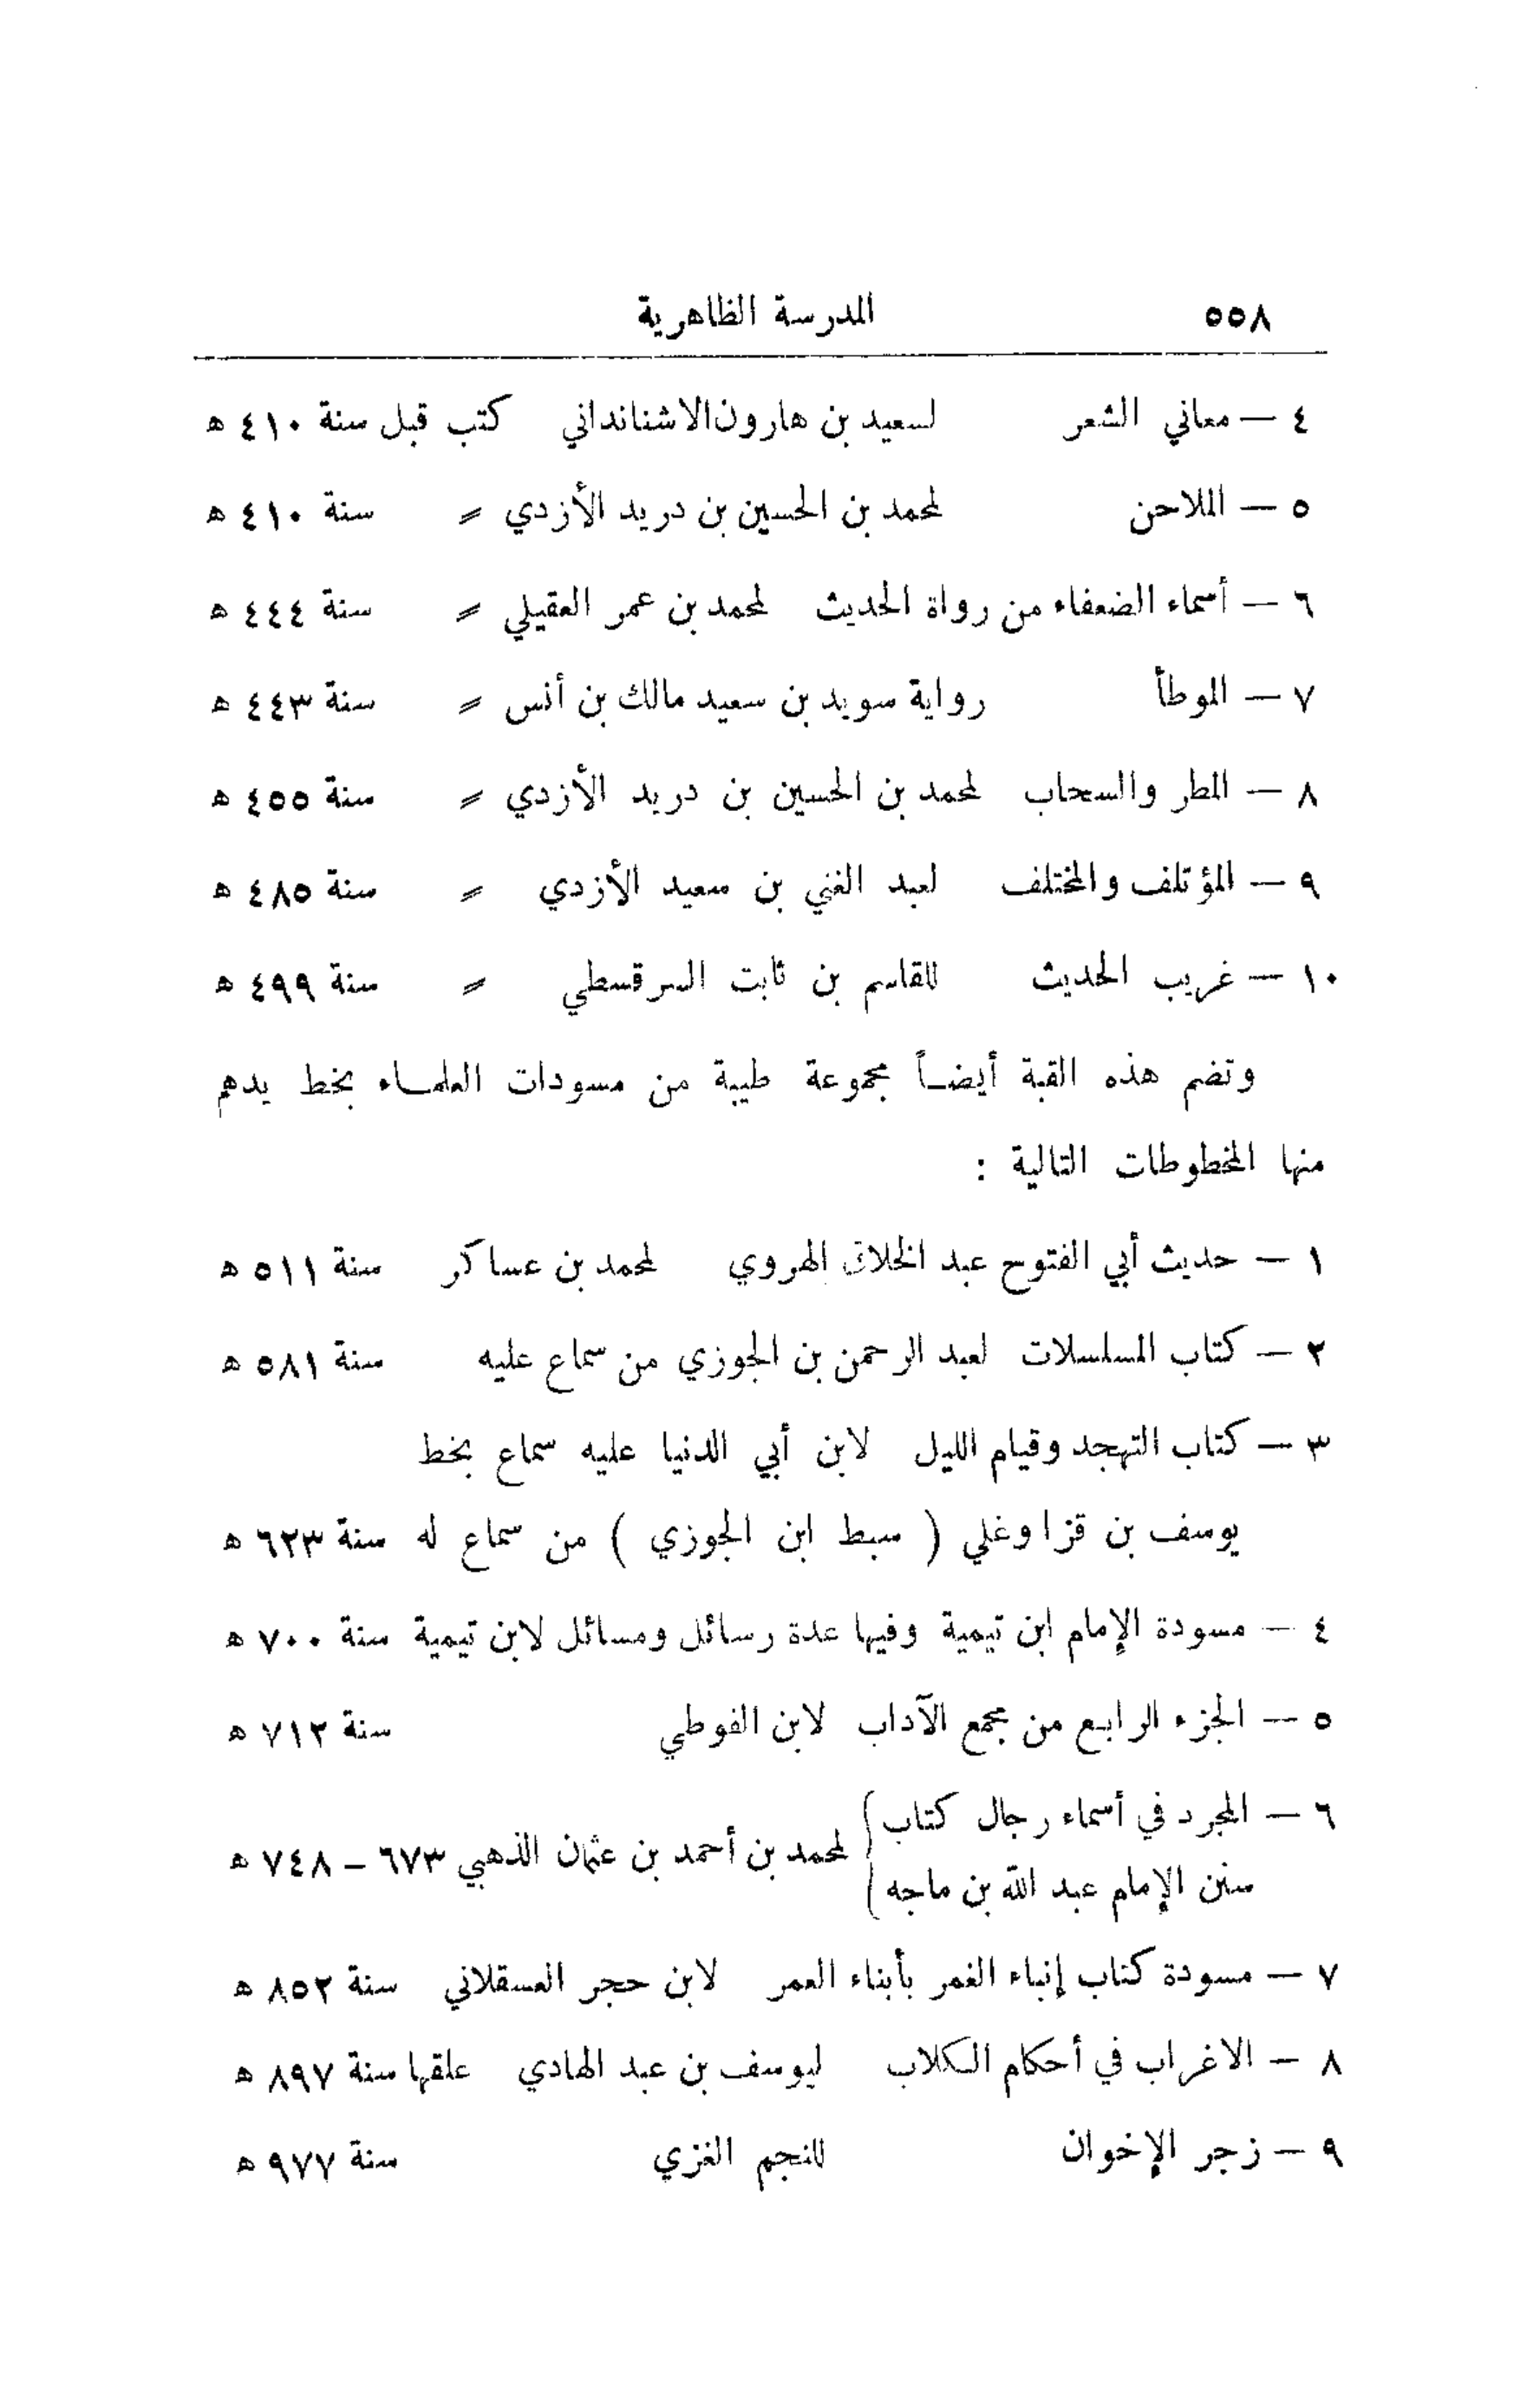 ٥٥٨ المدرسة الظاهرية
٤ — معاني الشعر لسعيد بن هارون الاشنانداني كتب قبل سنة ٤١٠ ه
٥ — الملاحن لمحمد بن الحسين بن دريد الأزدي = سنة ٤١٠ ه
٦ — أسماء الضعفاء من رواة الحديث لمحمد بن عمر العقيلي = سنة ٤٤٤ ه
٧ — الموطأ رواية سويد بن سعيد مالك بن أنس = سنة ٤٤٣ ه
٨ — المطر والسحاب لمحمد بن الحسين بن دريد الأزدي = سنة ٤٥٥ ه
٩ — المؤتلف والمختلف لعبد الغني بن سعيد الأزدي = سنة ٤٨٥ ه
١٠ — غريب الحديث للقاسم بن ثابت السرقسطي = سنة ٤٩٩ ه
وتضم هذه القبة أيضاً مجموعة طيبة من مسودات العلماء بخط يدهم
منها المخطوطات التالية :
١ — حديث أبي الفتوح عبد الخلاق الهروي لمحمد بن عساكر سنة ٥١١ ه
٢ — كتاب المسلسلات لعبد الرحمن بن الجوزي من سماع عليه سنة ٥٨١ ه
٣ — كتاب التهجد وقيام الليل لابن أبي الدنيا عليه سماع بخط
يوسف بن قزاوغلي ( سبط ابن الجوزي ) من سماع له سنة ٦٢٣ ه
٤ — مسودة الإمام ابن تيمية وفيها عدة رسائل ومسائل لابن تيمية سنة ٧٠٠ ه
٥ — الجزء الرابع من مجمع الآداب لابن الفوطي سنة ٧١٢ ه
٦ — المجرد في أسماء رجال كتاب
سنن الإمام عبد الله بن ماجه
لمحمد بن أحمد بن عثمان الذهبي ٦٧٣ — ٧٤٨ ه
٧ — مسودة كتاب إنباء الغمر بأبناء العمر لابن حجر العسقلاني سنة ٨٥٢ ه
٨ — الاغراب في أحكام الكلاب ليوسف بن عبد الهادي علقها سنة ٨٩٧ ه
٩ — زجر الإخوان للنجم الغزي سنة ٩٧٧ ه